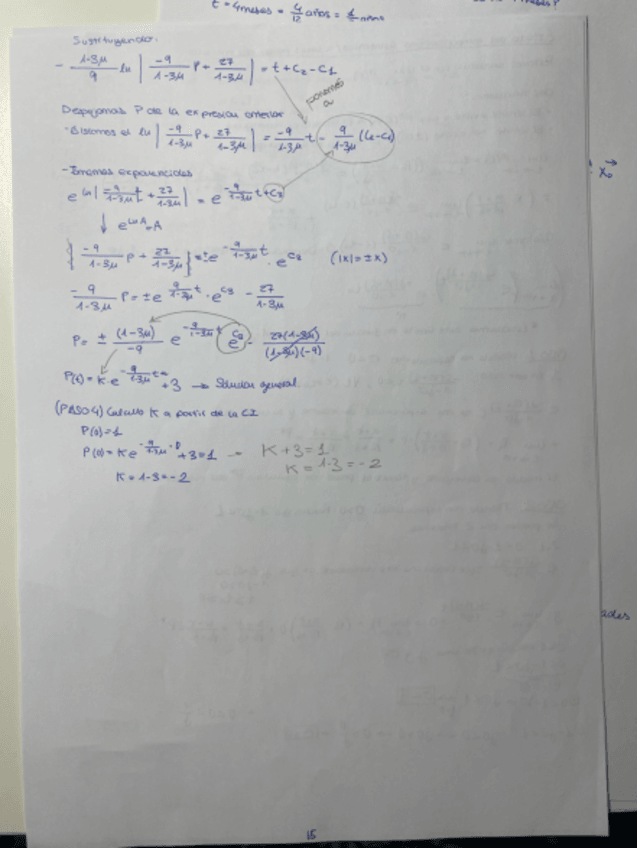 t = 4 meses = 4/12 años = 1/3 años
Sustituyendo:
- (1-3μ)/9 ln | -9/(1-3μ) P + 27/(1-3μ) | = t + C2 - C1
ponemos a
Despejamos P de la expresión anterior
ln | -9/(1-3μ) P + 27/(1-3μ) | = -9/(1-3μ) t - 9/(1-3μ) (C2-C1)
- Tomamos exponenciales
e^(ln | -9/(1-3μ) t + 27/(1-3μ) |) = e^(-9/(1-3μ) t + C3)
↓ e^(ln A) = A
{ -9/(1-3μ) P + 27/(1-3μ) } = ± e^(-9/(1-3μ) t) · e^(C3) (|K| = ±K)
-9/(1-3μ) P = ± e^(-9/(1-3μ) t) · e^(C3) - 27/(1-3μ)
P = ± (1-3μ)/-9 e^(-9/(1-3μ) t) e^(C3) - 27(1-3μ)/((1-3μ)(-9))
P(t) = K · e^(-9/(1-3μ) t) + 3 → Solución general
(PASO 4) Calculo K a partir de la CI
P(0) = 1
P(0) = K e^(-9/(1-3μ) · 0) + 3 = 1 → K + 3 = 1
K = 1-3 = -2
K = 1-3 = -2
X₀
ades
15